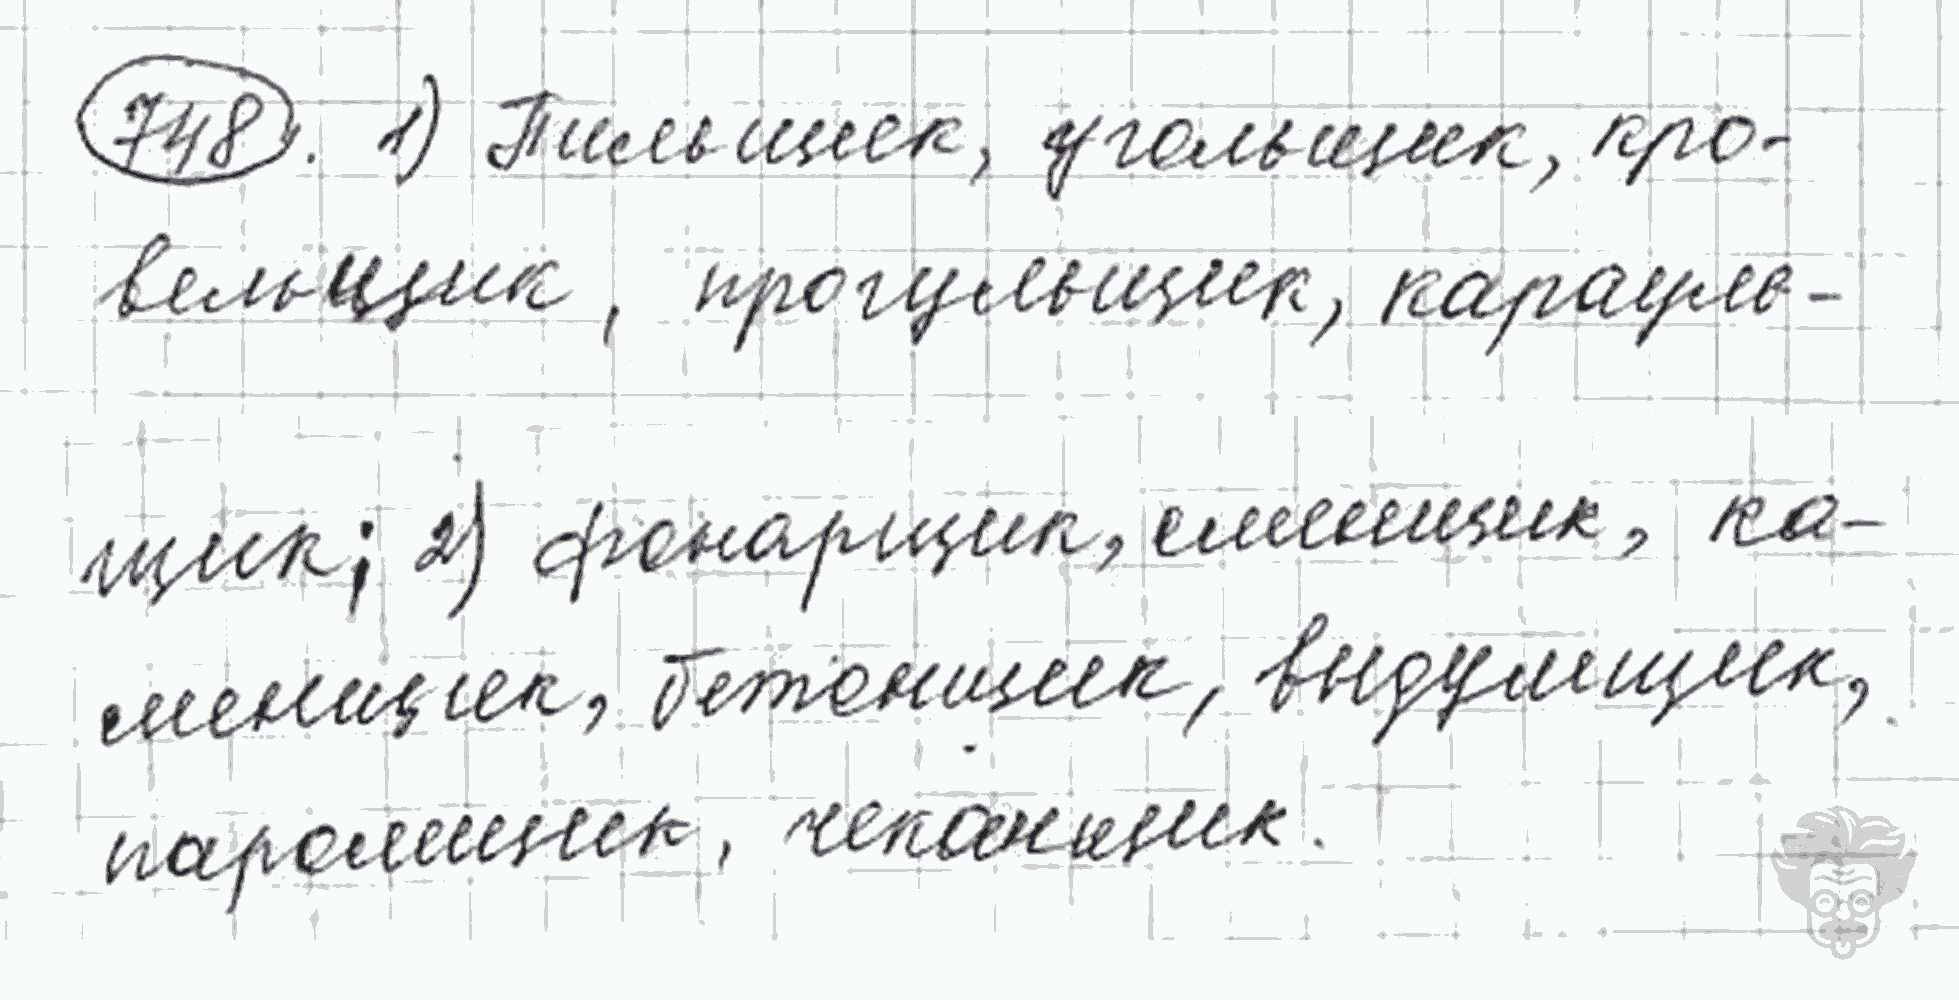 748. 1) Пильщик, угольщик, кро-
вельщик, прогульщик, карауль-
щик; 2) фонарщик, сменщик, ка-
менщик, бетонщик, выдумщик,
паромщик, чеканщик.